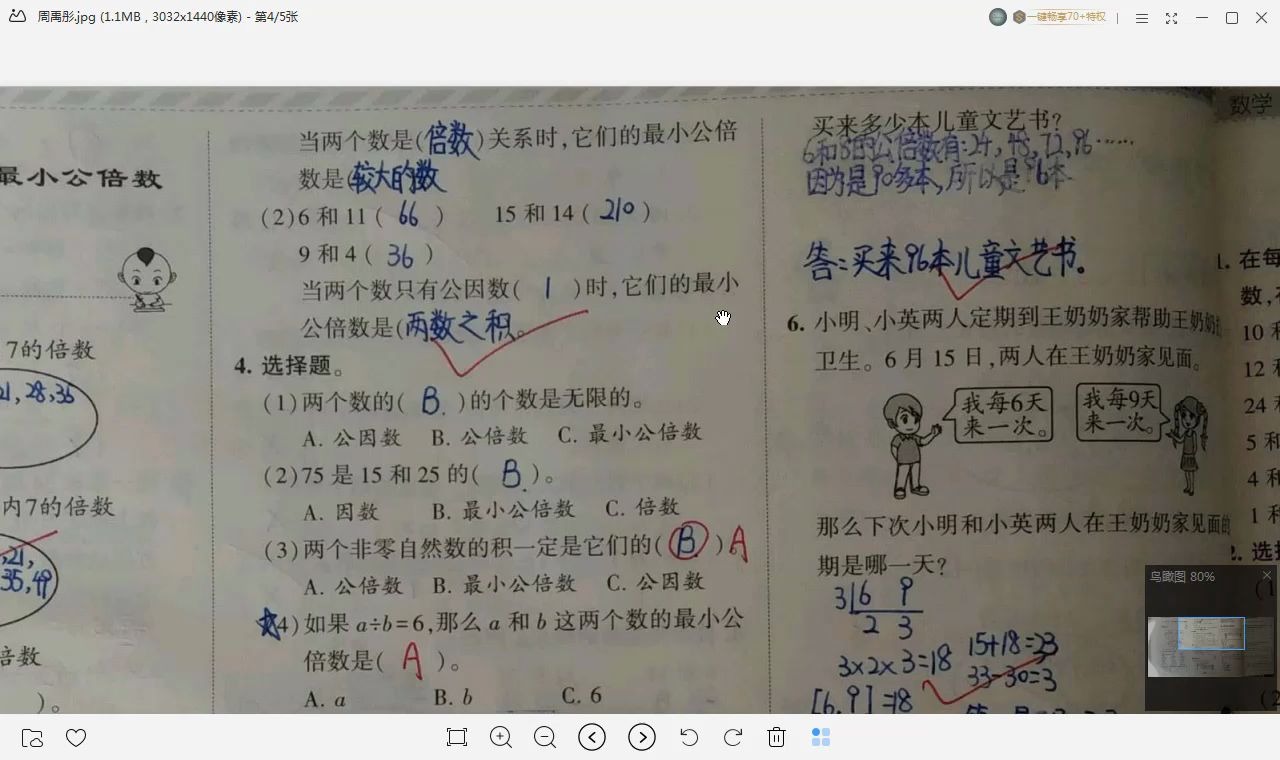 周禹彤.jpg (1.1MB , 3032x1440像素) - 第4/5张
一键畅享70+特权
最小公倍数
7的倍数
21, 28, 35
内7的倍数
21,
35, 49
倍数
)。
当两个数是(倍数)关系时,它们的最小公倍
数是(较大的数
(2)6 和 11 ( 66 ) 15 和 14 ( 210 )
9 和 4 ( 36 )
当两个数只有公因数( 1 )时,它们的最小
公倍数是(两数之积。
4. 选择题。
(1)两个数的( B )的个数是无限的。
A. 公因数 B. 公倍数 C. 最小公倍数
(2)75 是 15 和 25 的( B )。
A. 因数 B. 最小公倍数 C. 倍数
(3)两个非零自然数的积一定是它们的( B ) A
A. 公倍数 B. 最小公倍数 C. 公因数
(4)如果 a÷b=6,那么 a 和 b 这两个数的最小公
倍数是( A )。
A. a B. b C. 6
买来多少本儿童文艺书?
6和8的公倍数有:24, 48, 72, 96……
因为是90多本,所以是96本
答:买来96本儿童文艺书。
6. 小明、小英两人定期到王奶奶家帮助王奶奶
卫生。6 月 15 日,两人在王奶奶家见面。
我每6天
来一次。
我每9天
来一次。
那么下次小明和小英两人在王奶奶家见面的
期是哪一天?
3 6 9
2 3
3×2×3=18
[6,9]=18
15+18=23
33-30=3
数学
1. 在每
数,
10 和
12 和
24 和
5 和
4 和
1 和
2. 选择
鸟瞰图 80%